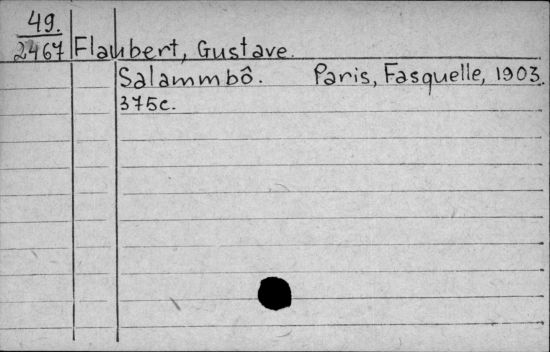 49.
2467 Flaubert, Gustave.
Salammbô. Paris, Fasquelle, 1903.
375c.